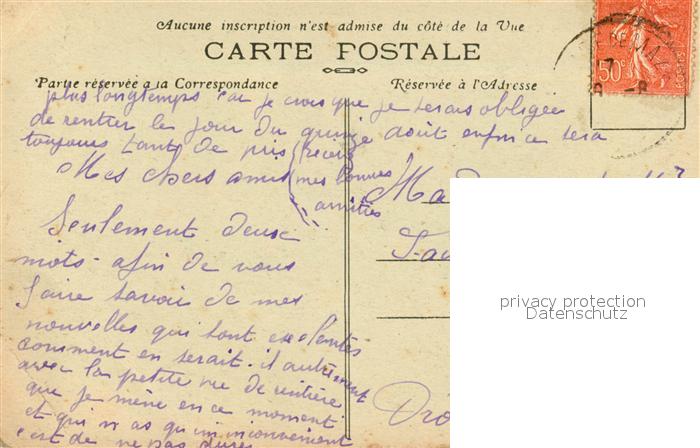 Aucune inscription n'est admise du côté de la Vue
CARTE POSTALE
Partie réservée a la Correspondance
Réservée à l'Adresse
50c
plus longtemps car je crois que je serais obligée
de rentrer le jour du quinze août enfin ce sera
toujours tant de pris
Mes chers amis
mes bonnes
amitiés
Seulement deux
mots afin de vous
faire savoir de mes
nouvelles qui sont excelentes
comment en serait-il autrement
avec la petite vie de rentière
que je mène en ce moment
et qui n'as qu'un inconvenient
c'est de ne pas durer
Mad
privacy protection
Datenschutz